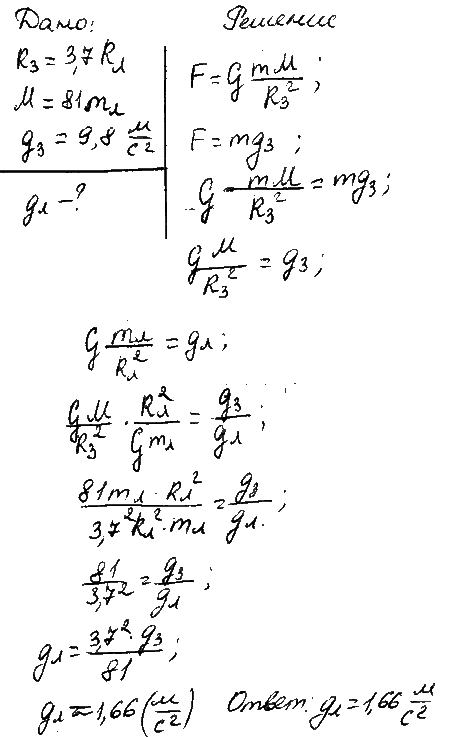 Дано:
R₃ = 3,7 Rл
M = 81 mл
g₃ = 9,8 м/с²
gл - ?
Решение
F = G mM/R₃² ;
F = mg₃ ;
G mM/R₃² = mg₃ ;
G M/R₃² = g₃ ;
G mл/Rл² = gл ;
GM/R₃² · Rл²/Gmл = g₃/gл ;
81mл · Rл²/3,7²Rл² · mл = g₃/gл .;
81/3,7² = g₃/gл ;
gл = 3,7² · g₃/81 ;
gл = 1,66 (м/с²) Ответ: gл = 1,66 м/с²